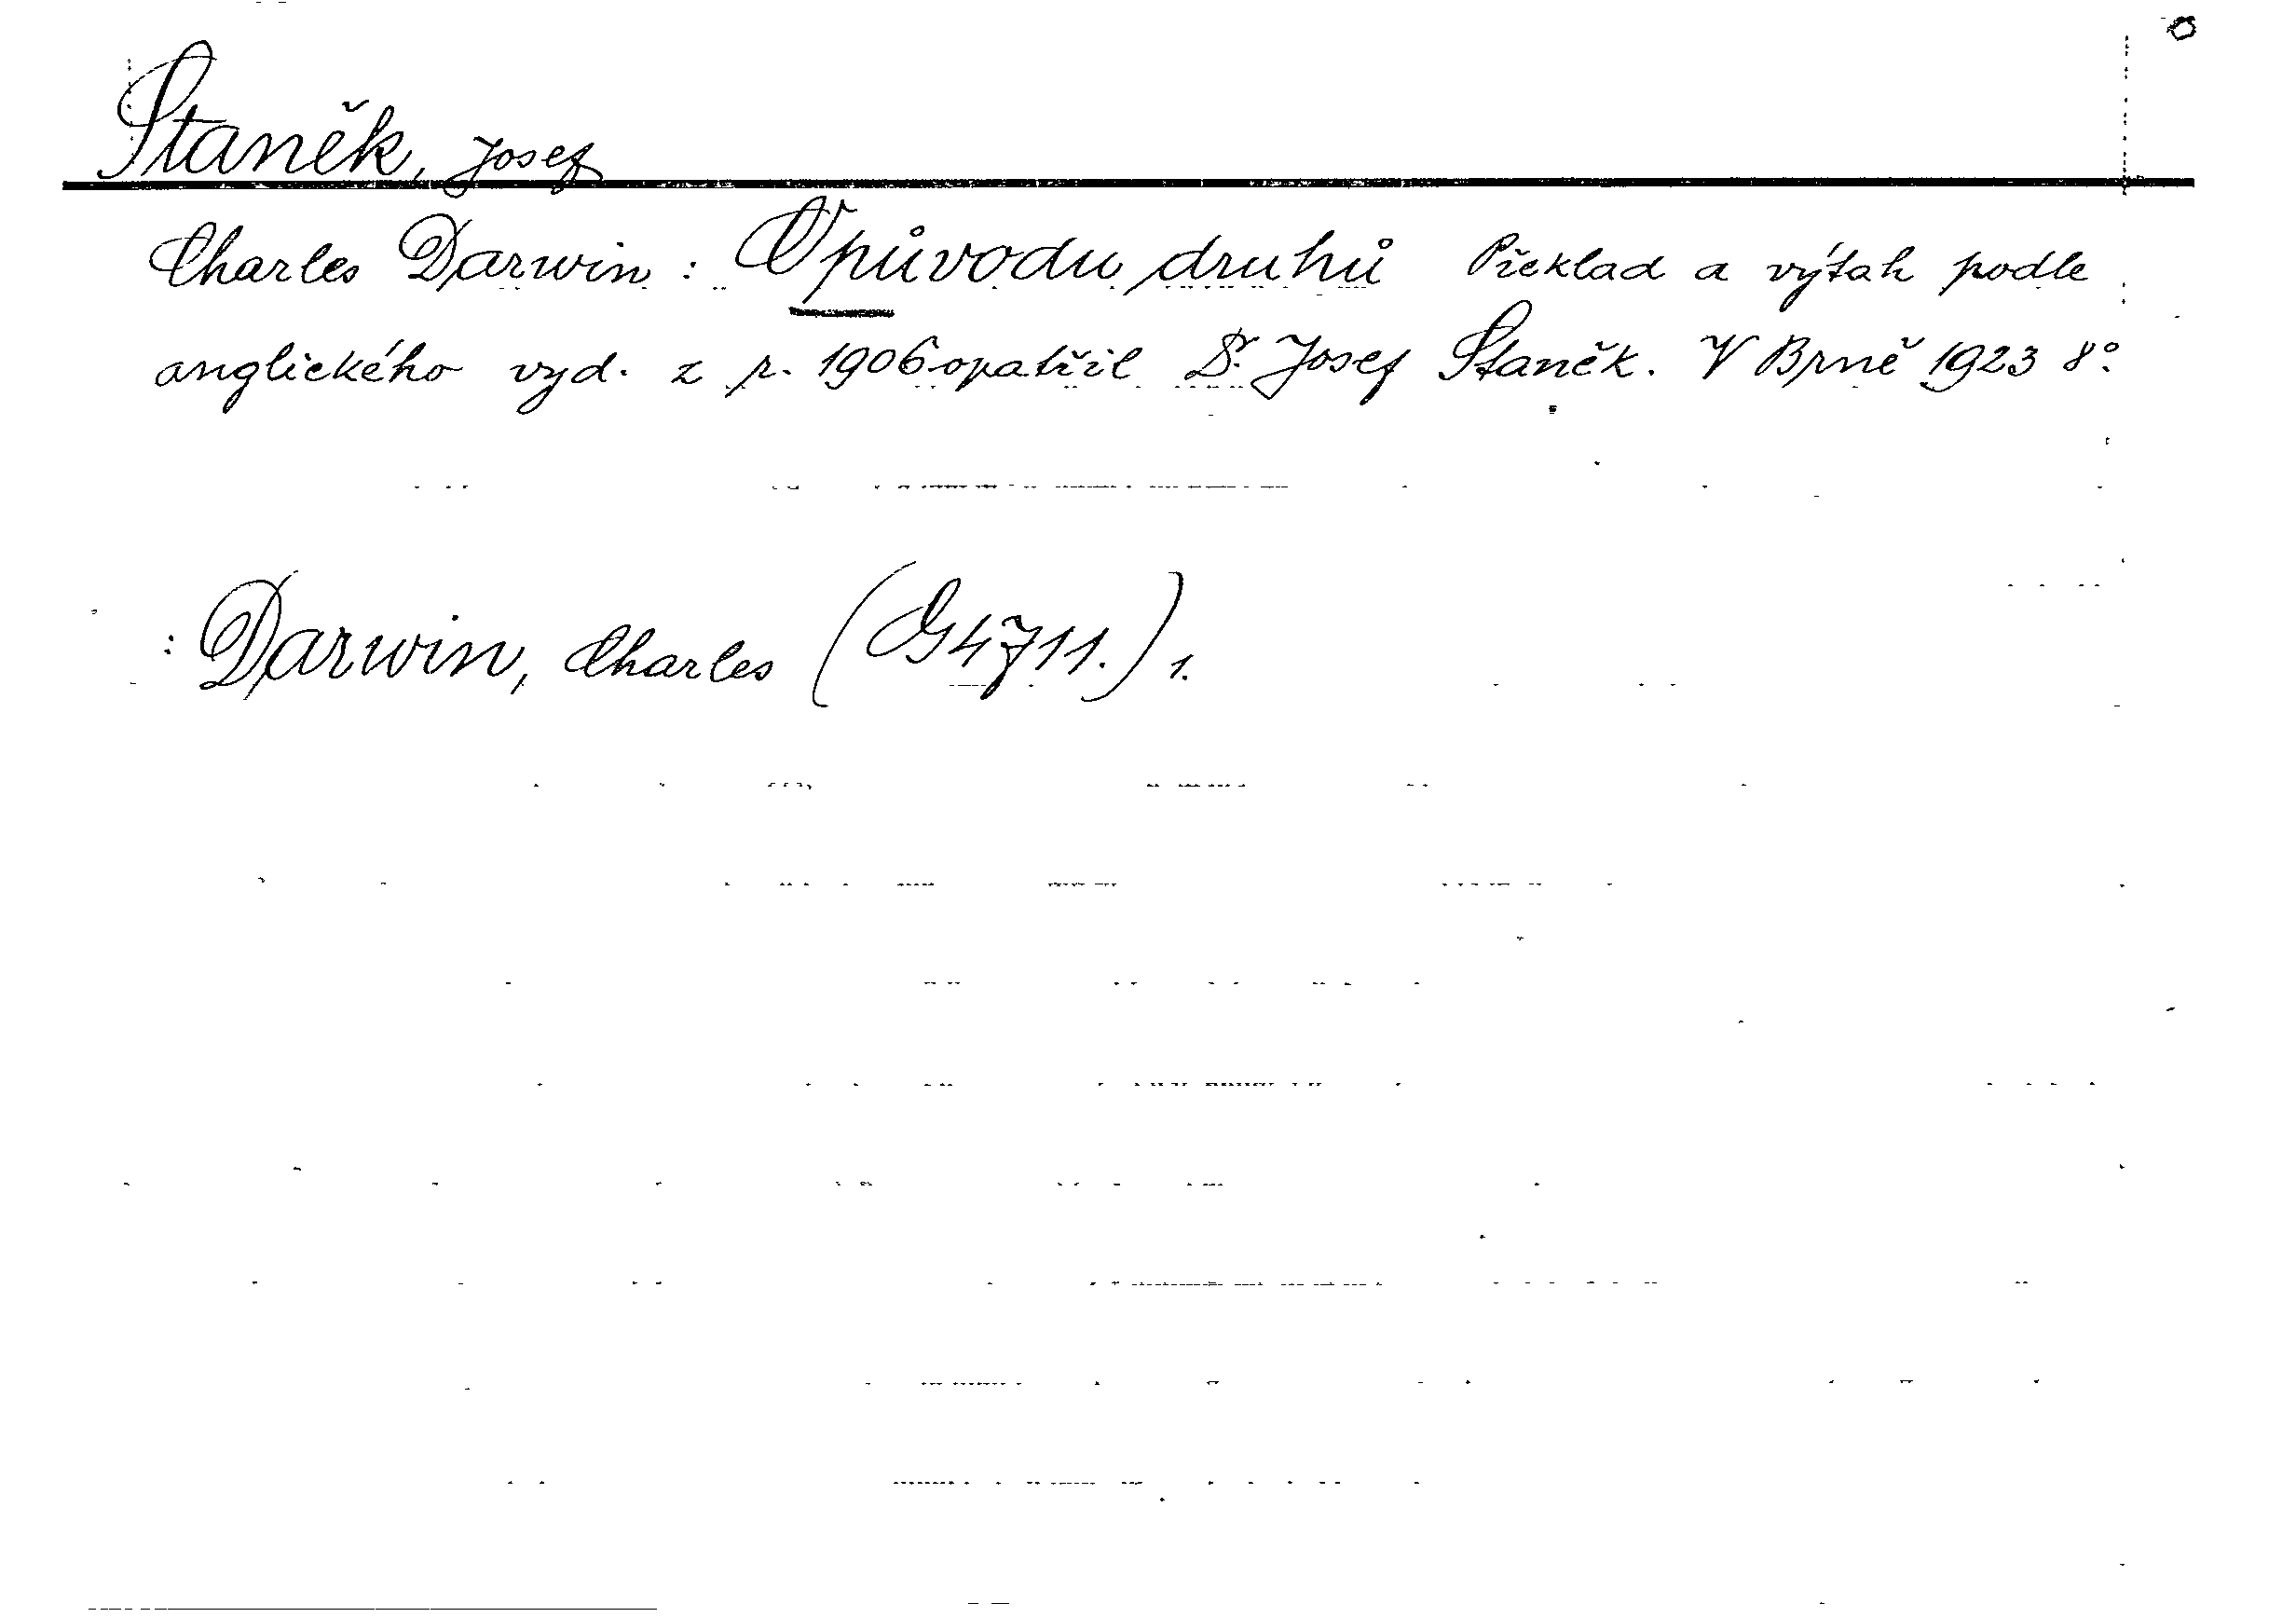 Staněk, Josef
Charles Darwin : O původu druhů Překlad a výtah podle
anglického vyd. z r. 1906 opatřil Dr. Josef Staněk. V Brně 1923 8°.
: Darwin, Charles (G4711.) 1.